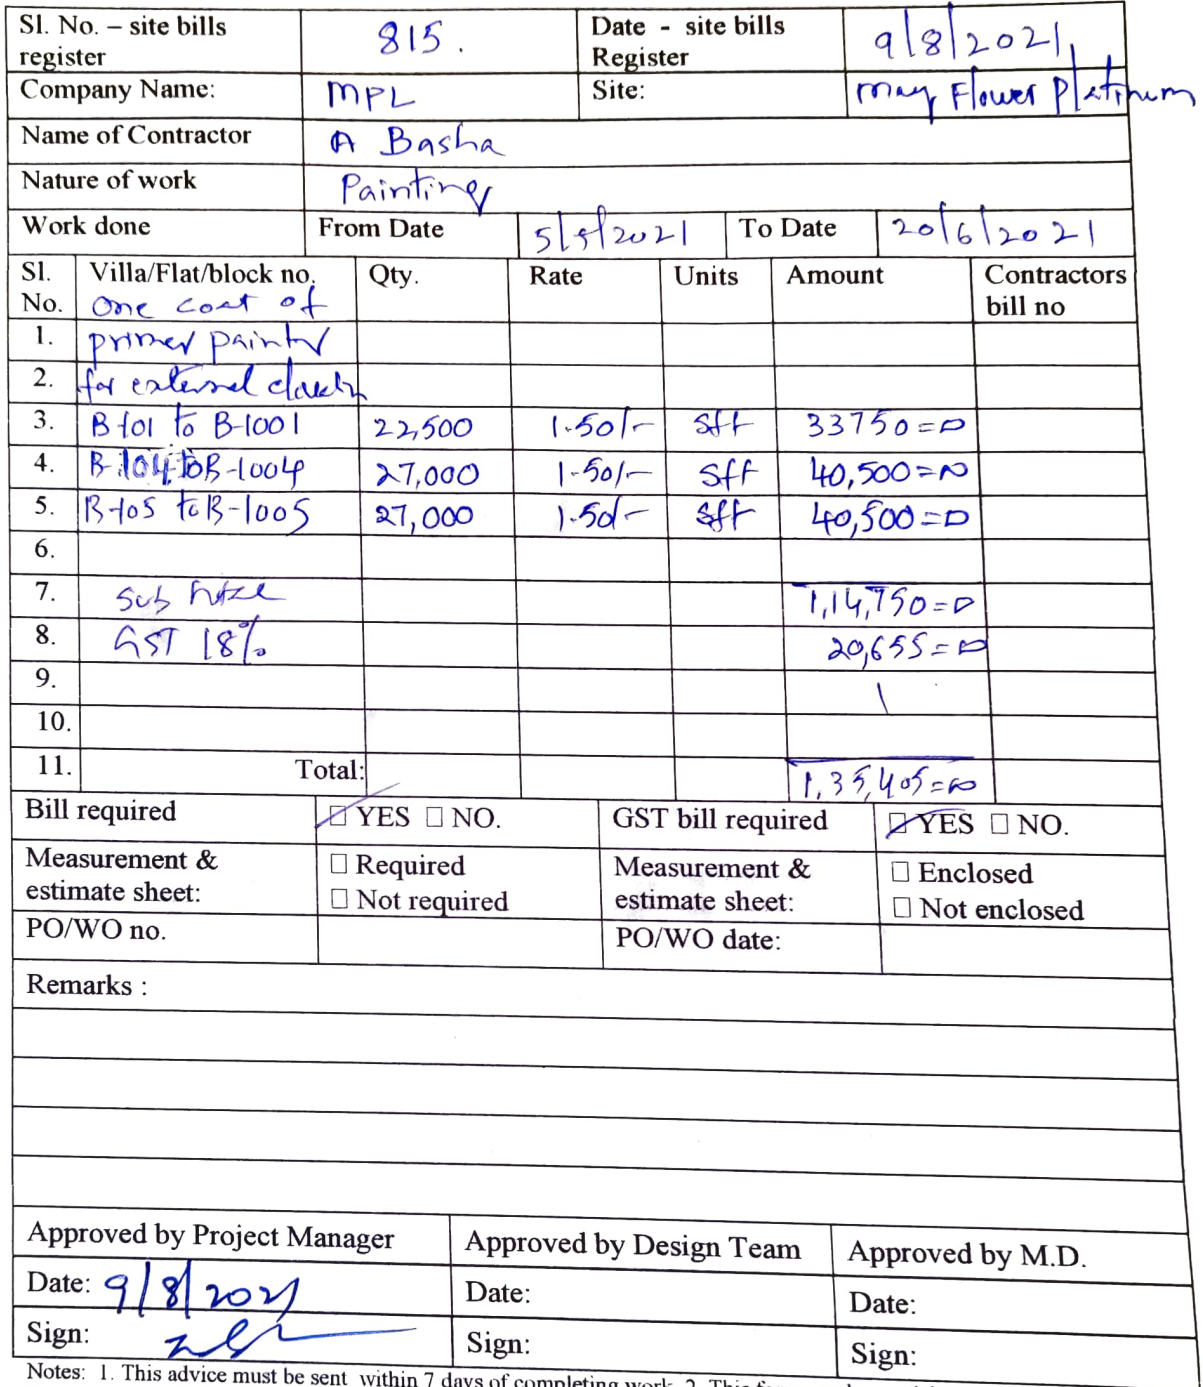 Sl. No. – site bills register 815. Date - site bills Register 9/8/2021
Company Name: MPL Site: may Flower Platinum
Name of Contractor A Basha
Nature of work Painting
Work done From Date 5/5/2021 To Date 20/6/2021
Sl. No. Villa/Flat/block no. Qty. Rate Units Amount Contractors bill no
one coat of
1. primer
2. for external
3. B-101 to B-1001 22,500 1.50/- sft 33750=0
4. B-104 to B-1004 27,000 1.50/- sff 40,500=0
5. B-105 to B-1005 27,000 1.50/- sft 40,500=0
6.
7. Sub 1,14,750=0
8. GST 18% 20,655=0
9.
10.
11. Total: 1,35,405=0
Bill required ☐ YES ☐ NO. GST bill required ☐ YES ☐ NO.
Measurement & estimate sheet: ☐ Required ☐ Not required Measurement & estimate sheet: ☐ Enclosed ☐ Not enclosed
PO/WO no. PO/WO date:
Remarks :
Approved by Project Manager Approved by Design Team Approved by M.D.
Date: 9/8/2021 Date: Date:
Sign: Sign: Sign:
Notes: 1. This advice must be sent within 7 days of completing work. 2. This